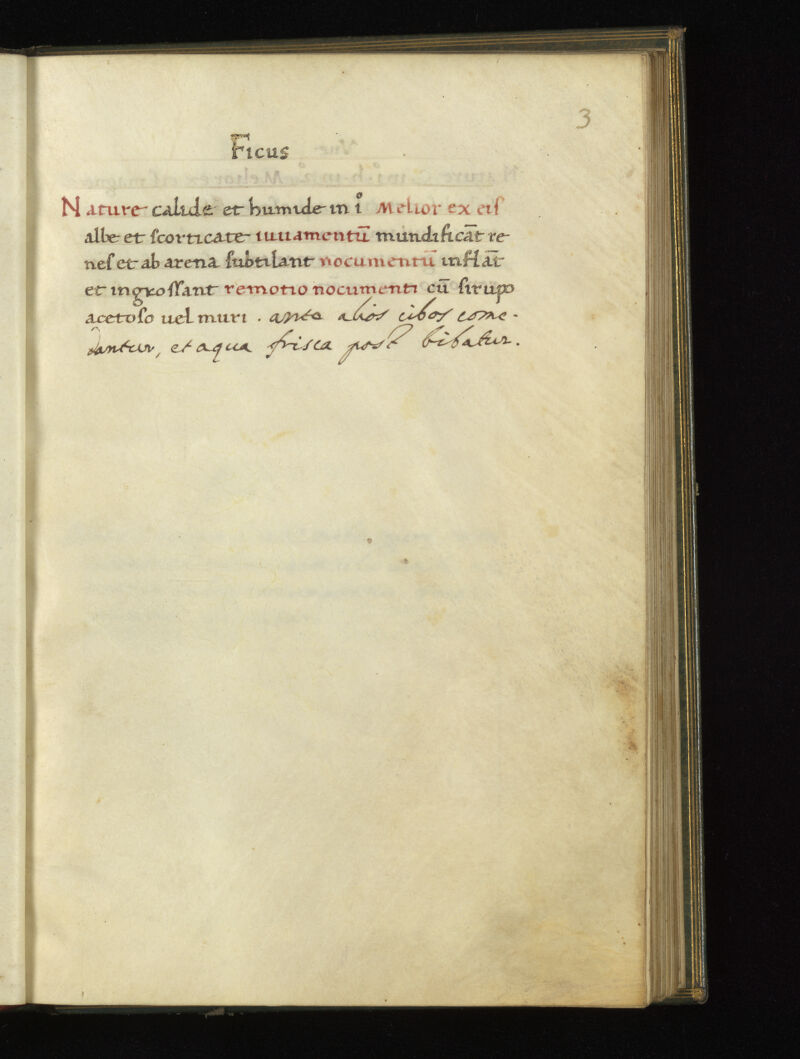 3
Ficus
Nature calide et humide in i° Melior ex eis
albe et scorticate iuuamentū mundificāt re-
nes et ab arena subtilant nocumentū inflāt
et ingrossant remotio nocumenti cū sirupo
acetoso uel muri . antea alios cibos come-
dantur, et aqua frisca post bibatur.